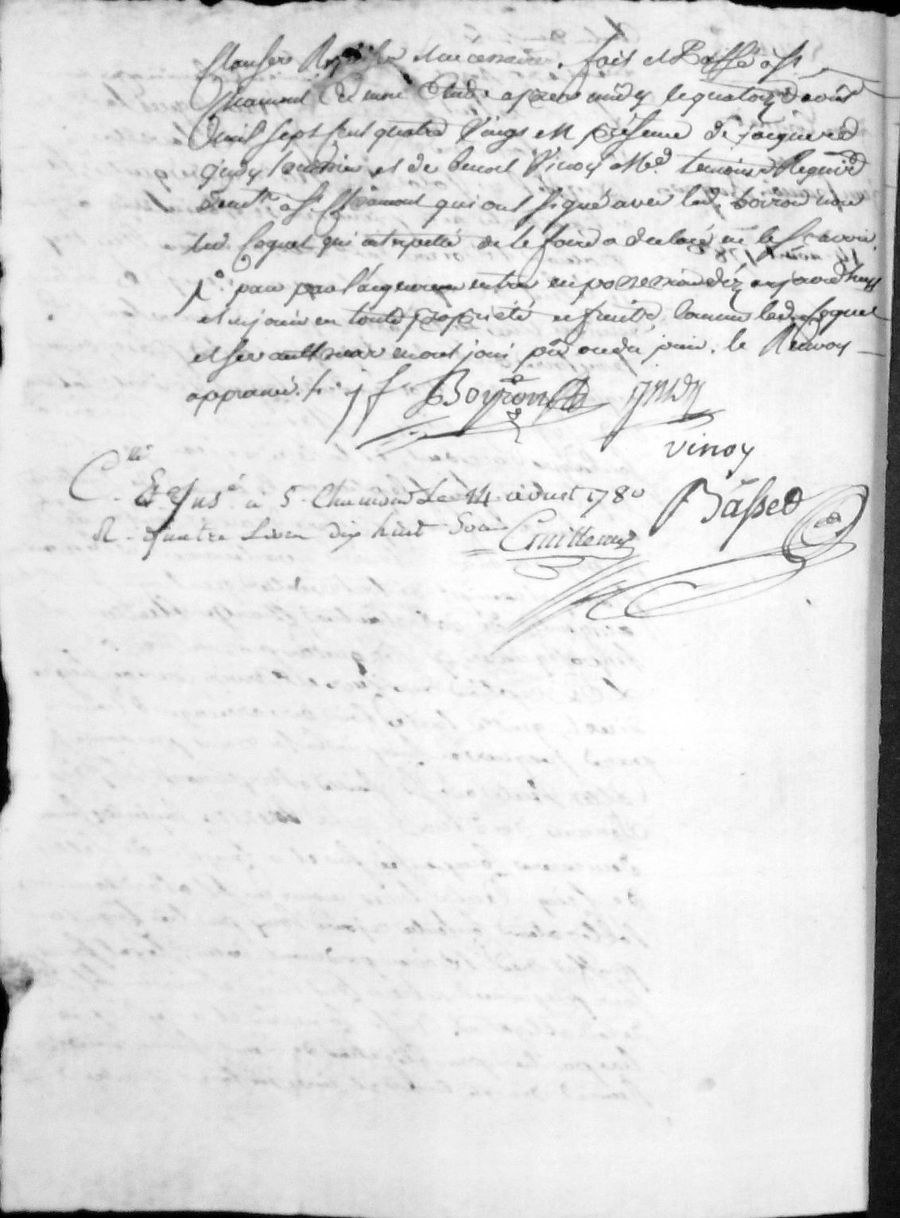 Clauses Requises et necessaires. fait et Passé a St
Chamond Etude apres midy le quatorze aoust
mil sept cent quatre Vingt en présence de jacques
et de benoit Vinoy Md. temoins Requis
demt. a St. Chamond qui ont signé avec led. boiron non
led. Coquet qui interpellé de le faire a declaré ne le sçavoir.
pour par l'acquereur entrer en possession déz aujourdhuy
et en jouir en toute propriété et fruits comme led. Coquet
et ses autheurs en ont joui pû ou dû jouir. le Renvoy
approuvé ./.
j f Boyron
vinoy
Basset
C. lé Et Insé. a S. Chamond Le 14. aoust 1780
R. quatre Livres dix huit Sous